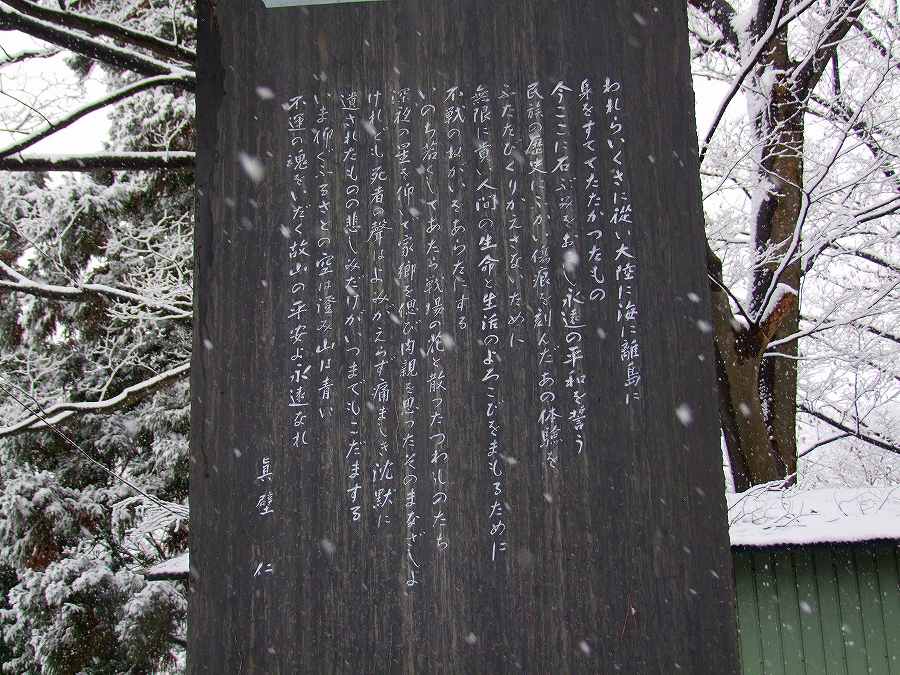 われらいくさに從い大陸に海に離島に
身をすててたたかつたもの
今ここに石ぶみをおこし永遠の平和を誓う
民族の歴史にふかい傷痕を刻んだあの体験を
ふたたびくりかえさないために
無限に貴い人間の生命と生活のよろこびをまもるために
不戦のねがいをあらたにする
いのち若くしてあたら戦場の花と散つたつわものたち
深夜の星を仰いで家郷を偲び肉親を思つたそのまなざしよ
けれども死者の聲はよみがえらず痛ましき沈默に
遺されたものの悲しみだけがいつまでもこだまする
いま仰ぐふるさとの空は澄み山は青い
不運の魂をいだく故山の平安よ永遠なれ
眞壁 仁